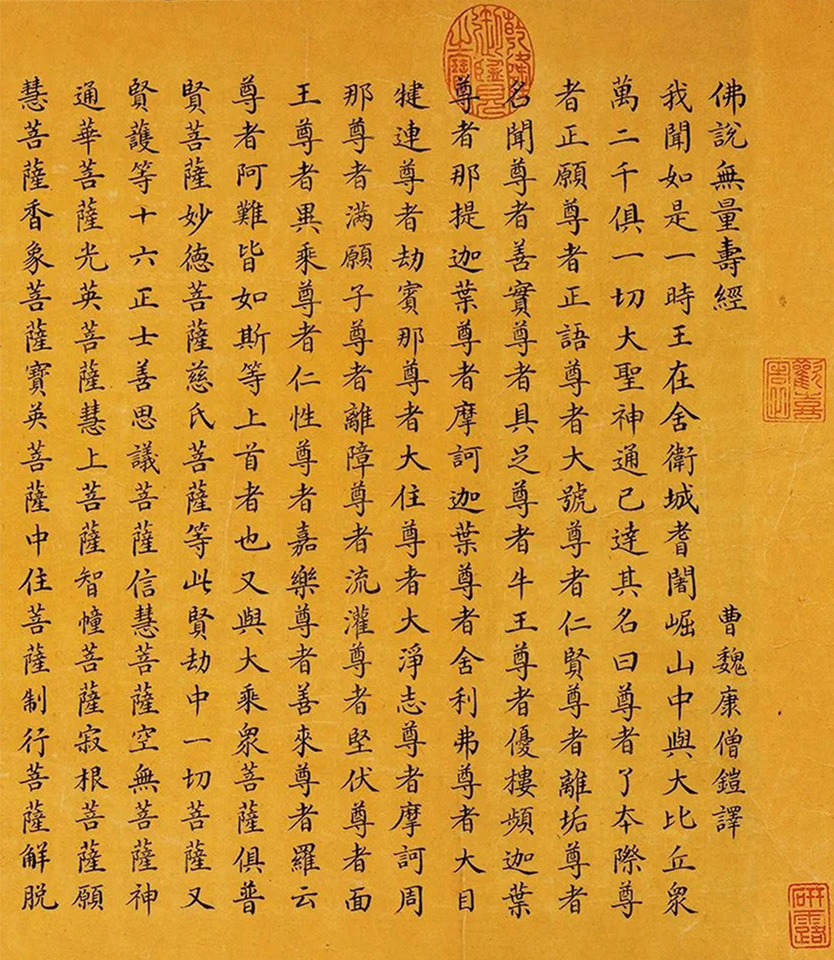 佛說無量壽經
曹魏康僧鎧譯
我聞如是一時王在舍衛城耆闍崛山中與大比丘衆
萬二千俱一切大聖神通已達其名曰尊者了本際尊
者正願尊者正語尊者大號尊者仁賢尊者離垢尊者
名聞尊者善實尊者具足尊者牛王尊者優樓頻迦葉
尊者那提迦葉尊者摩訶迦葉尊者舍利弗尊者大目
犍連尊者劫賓那尊者大住尊者大淨志尊者摩訶周
那尊者满願子尊者離障尊者流灌尊者堅伏尊者面
王尊者異乘尊者仁性尊者嘉樂尊者善來尊者羅云
尊者阿難皆如斯等上首者也又與大乘衆菩薩俱普
賢菩薩妙德菩薩慈氏菩薩等此賢劫中一切菩薩又
賢護等十六正士善思議菩薩信慧菩薩空無菩薩神
通華菩薩光英菩薩慧上菩薩智幢菩薩寂根菩薩願
慧菩薩香象菩薩寶英菩薩中住菩薩制行菩薩解脫
乾隆御覽之寶
研露